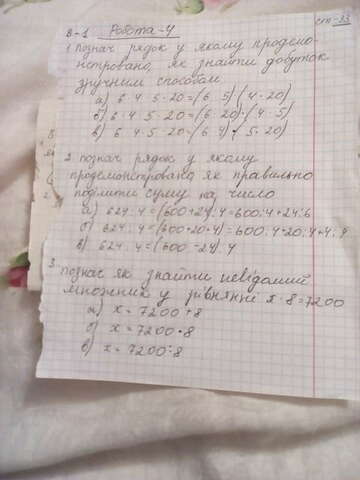 ст-33
В-1 Робота-4
1. познач рядок у якому продемо-
нстровано, як знайти добуток
зручним способом
а) 6·4·5·20=(6·5)·(4·20)
б) 6·4·5·20=(6·20)·(4·5)
в) 6·4·5·20=(6·4)·(5·20)
2. познач рядок у якому
продемонстровано як правильно
поділити суму на число
а) 624:4=(600+24):4=600:4+24:6
б) 624:4=(600+20+4)=600:4+20:4+4:4
в) 624:4=(600-24):4
3. познач як знайти невідомий
множник у рівнянні x·8=7200
а) x=7200+8
б) x=7200·8
в) x=7200:8